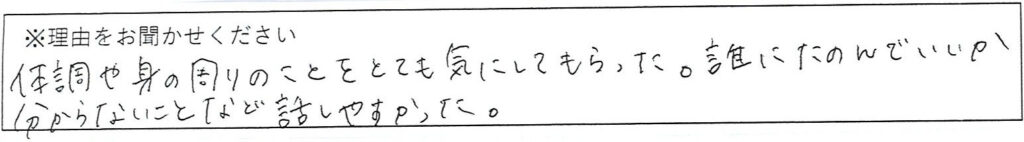 ※理由をお聞かせください
体調や身の周りのことをとても気にしてもらった。誰にたのんでいいか
分からないことなど話しやすかった。